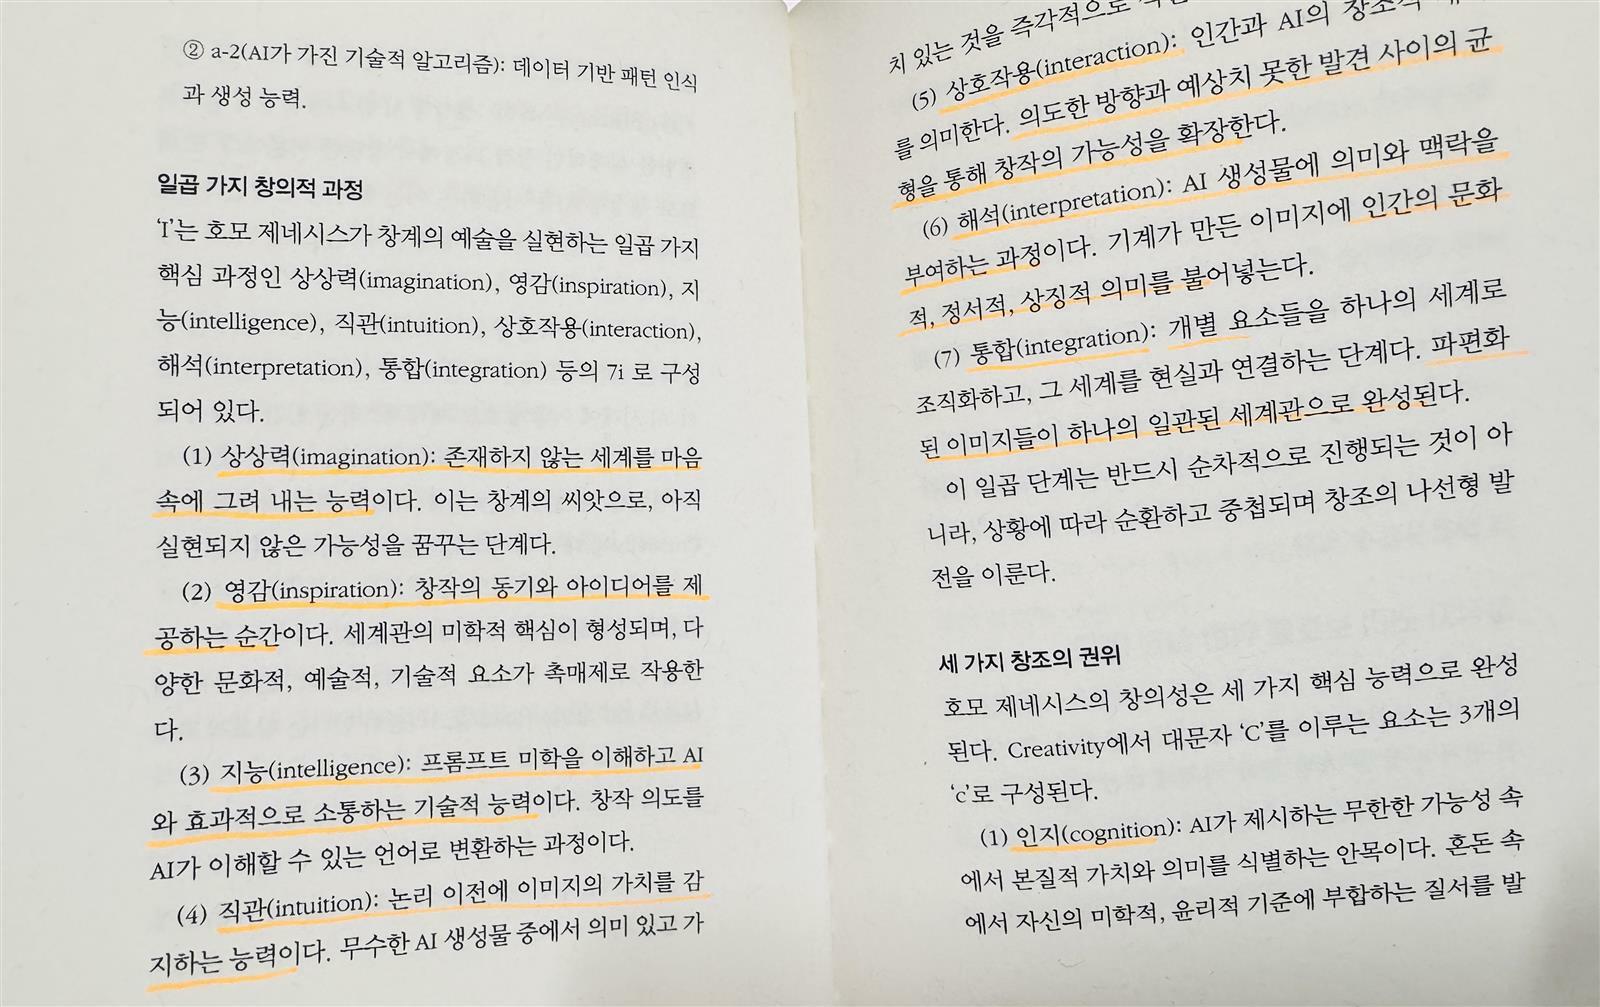 ② a-2(AI가 가진 기술적 알고리즘): 데이터 기반 패턴 인식
과 생성 능력.
일곱 가지 창의적 과정
‘I’는 호모 제네시스가 창계의 예술을 실현하는 일곱 가지
핵심 과정인 상상력(imagination), 영감(inspiration), 지
능(intelligence), 직관(intuition), 상호작용(interaction),
해석(interpretation), 통합(integration) 등의 7i 로 구성
되어 있다.
(1) 상상력(imagination): 존재하지 않는 세계를 마음
속에 그려 내는 능력이다. 이는 창계의 씨앗으로, 아직
실현되지 않은 가능성을 꿈꾸는 단계다.
(2) 영감(inspiration): 창작의 동기와 아이디어를 제
공하는 순간이다. 세계관의 미학적 핵심이 형성되며, 다
양한 문화적, 예술적, 기술적 요소가 촉매제로 작용한
다.
(3) 지능(intelligence): 프롬프트 미학을 이해하고 AI
와 효과적으로 소통하는 기술적 능력이다. 창작 의도를
AI가 이해할 수 있는 언어로 변환하는 과정이다.
(4) 직관(intuition): 논리 이전에 이미지의 가치를 감
지하는 능력이다. 무수한 AI 생성물 중에서 의미 있고 가
치 있는 것을 즉각적으로
(5) 상호작용(interaction): 인간과 AI의 창조적
를 의미한다. 의도한 방향과 예상치 못한 발견 사이의 균
형을 통해 창작의 가능성을 확장한다.
(6) 해석(interpretation): AI 생성물에 의미와 맥락을
부여하는 과정이다. 기계가 만든 이미지에 인간의 문화
적, 정서적, 상징적 의미를 불어넣는다.
(7) 통합(integration): 개별 요소들을 하나의 세계로
조직화하고, 그 세계를 현실과 연결하는 단계다. 파편화
된 이미지들이 하나의 일관된 세계관으로 완성된다.
이 일곱 단계는 반드시 순차적으로 진행되는 것이 아
니라, 상황에 따라 순환하고 중첩되며 창조의 나선형 발
전을 이룬다.
세 가지 창조의 권위
호모 제네시스의 창의성은 세 가지 핵심 능력으로 완성
된다. Creativity에서 대문자 ‘C’를 이루는 요소는 3개의
‘c’로 구성된다.
(1) 인지(cognition): AI가 제시하는 무한한 가능성 속
에서 본질적 가치와 의미를 식별하는 안목이다. 혼돈 속
에서 자신의 미학적, 윤리적 기준에 부합하는 질서를 발